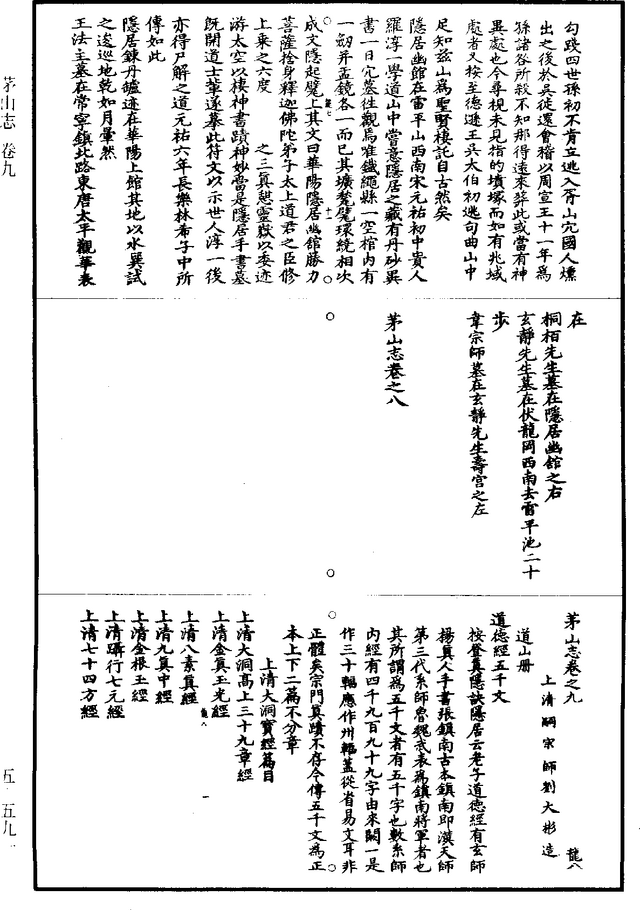 茅山志 卷九
五·五九一
勾踐四世孫初不肯立逃入胥山穴國人燻
出之後於吳從還會稽以周宣王十一年為
孫諸咎所殺不知那得遠來葬此或當有神
異處也今尋視未見指的墳塚而如有兆域
處者又按至德遜王吳太伯初逃句曲山中
足知茲山為聖賢棲託自古然矣
隱居幽館在雷平山西南宋元祐初中貴人
羅淳一學道山中嘗意隱居之藏有丹砂異
書一日穴墓往觀焉唯鐵繩縣一空棺內有
一劒并盂鏡各一而已其壙甃甓環繞相次
成文隱起甓上其文曰華陽隱居幽館勝力
菩薩捨身釋迦佛陀弟子太上道君之臣修
上乘之六度
之三真憇靈嶽以委迹
游太空以棲神書蹟神妙當是隱居手書墓
旣開道士輩遂摹此符文以示世人淳一後
亦得尸解之道元祐六年長樂林希子中所
傳如此
隱居鍊丹爐迹在華陽上館其地以水巽試
之逡巡地乾如月暈然
王法主墓在常寧鎮北路東唐太平觀華表
在
桐栢先生墓在隱居幽館之右
玄靜先生墓在伏龍岡西南去雷平池二十
步
韋宗師墓在玄靜先生壽宮之左
茅山志卷之八
茅山志卷之九
龍八
上清嗣宗師劉大彬造
道山册
道德經五千文
按登真隱訣隱居云老子道德經有玄師
揚真人手書張鎮南古本鎮南卽漢天師
第三代系師魯魏武表為鎮南將軍者也
其所謂為五千文者有五千字也數系師
內經有四千九百九十九字由來闕一是
作三十輻應作卅輻蓋從省易文耳非
正體矣宗門真蹟不存今傳五千文為正
本上下二篇不分章
上清大洞寶經篇目
上清大洞高上三十九章經
上清金真玉光經
上清八素真經
上清九真中經
上清金根玉經
上清躡行七元經
上清七十四方經